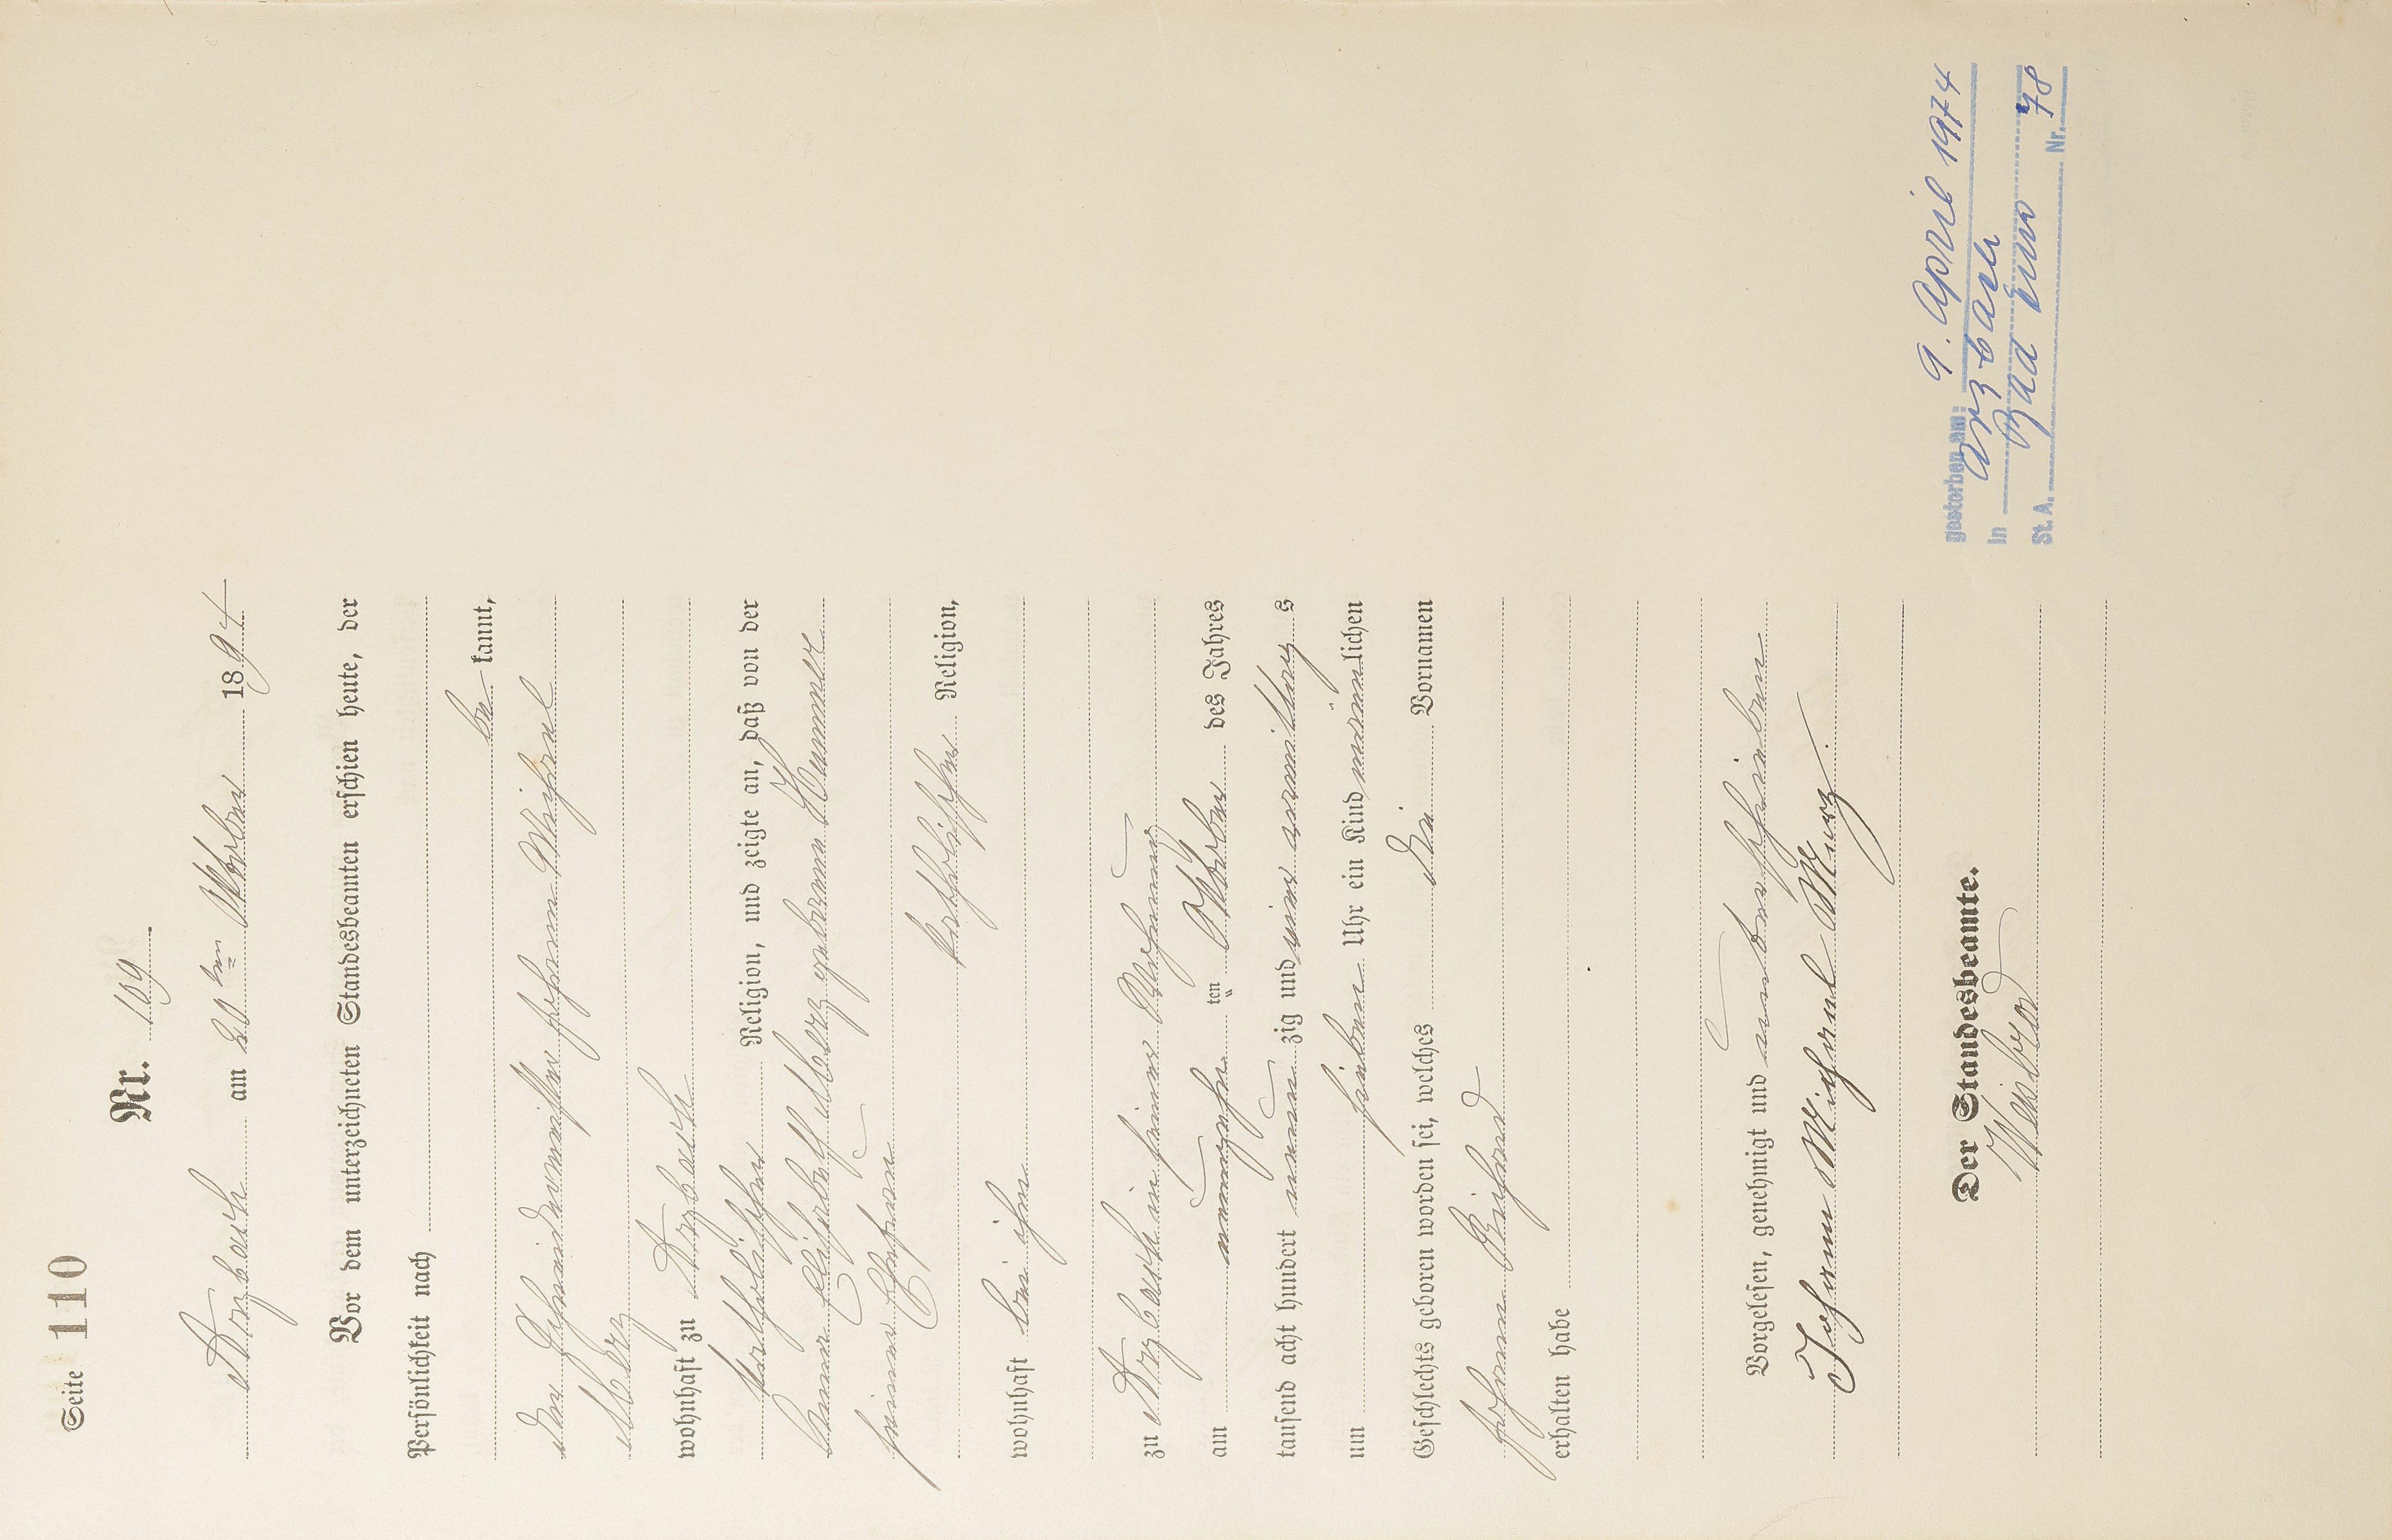 Seite 110
Nr. 109
Arzbach am 20ten Oktober 1894
Vor dem unterzeichneten Standesbeamten erschien heute, der
Persönlichkeit nach
be kannt,
der Johann Michael
wohnhaft zu Arzbach
katholischer Religion, und zeigte an, daß von der
Anna Elisabeth geborene Hummer
seiner Ehefrau
katholischer Religion,
wohnhaft bei ihm
zu Arzbach in seiner Wohnung
am neunzehn ten Oktober des Jahres
tausend acht hundert neun zig und vier vormittags
um sieben Uhr ein Kind männlichen
Geschlechts geboren worden sei, welches die Vornamen
Johann
erhalten habe
Vorgelesen, genehmigt und unterschrieben
Johann Michael Merz.
Der Standesbeamte.
gestorben am: 9. April 1974
in Arzbach
St. A. Bad Ems Nr. 78